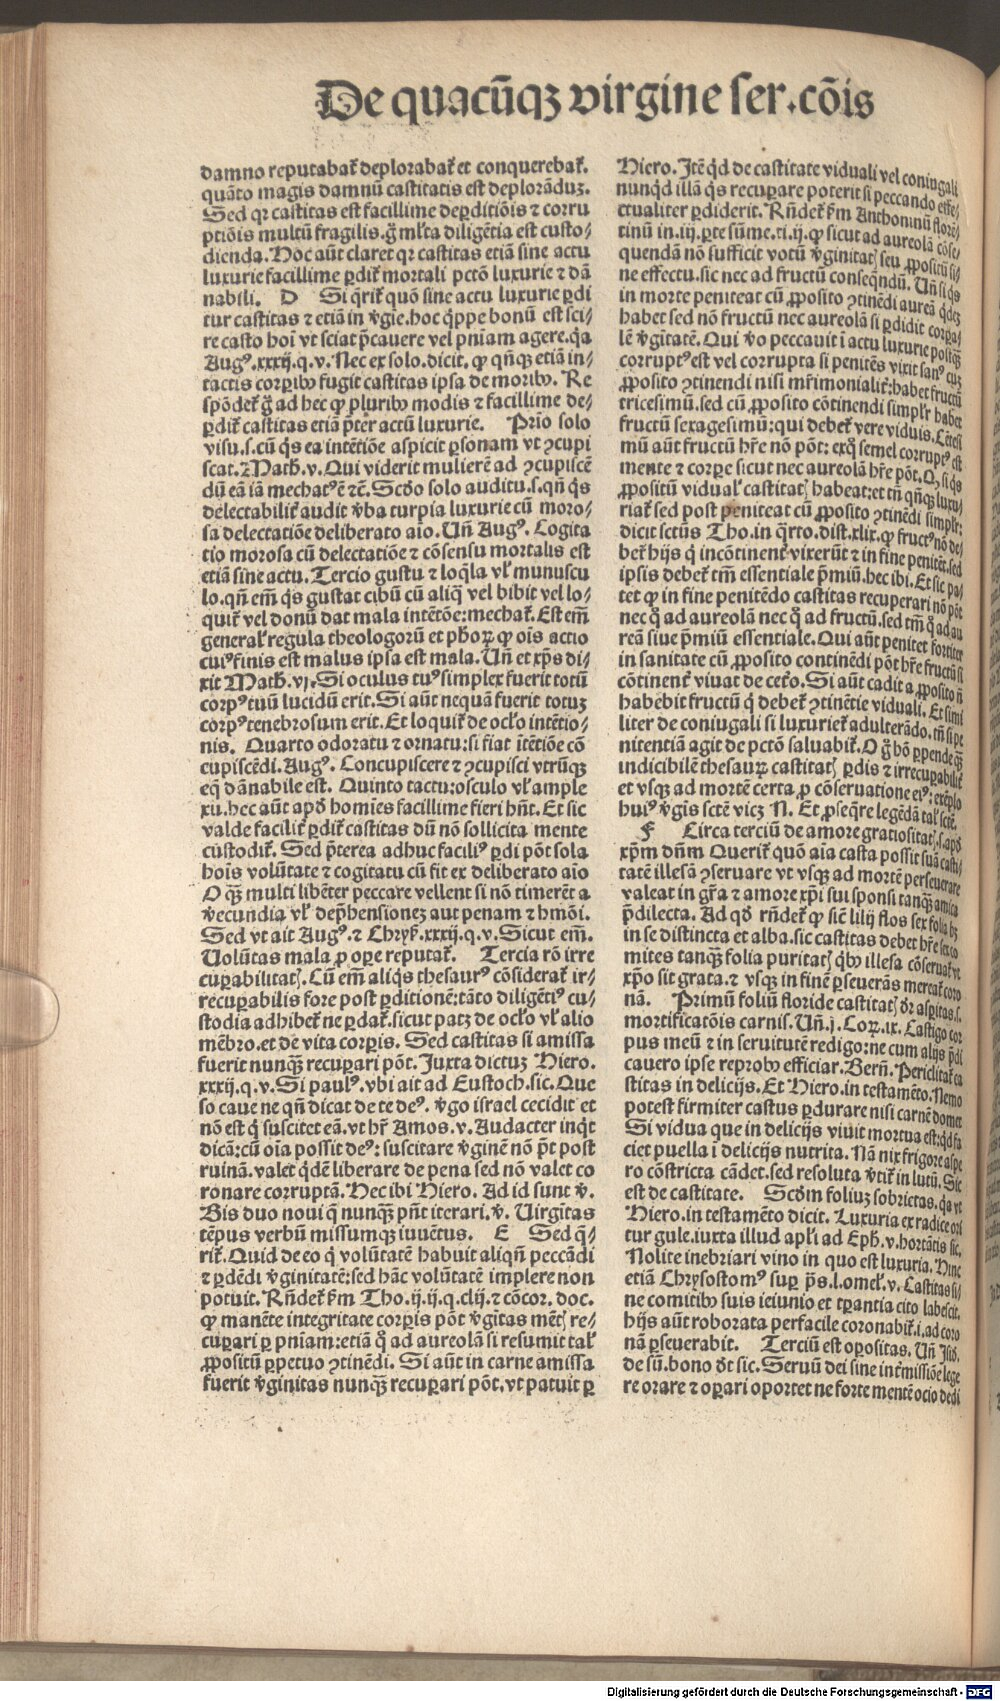 De quacũqȝ virgine ser. cõis
damno reputabat̃ deplorabat̃ et conquerebat̃.
quãto magis damnũ castitatis est deplorãduȝ.
Sed qꝛ castitas est facillime deꝑditiõis ⁊ corru
ptiõis multũ fragilis. g̃ ml̃ta diligẽtia est custo⸗
dienda. Hoc aũt claret qꝛ castitas etiã sine actu
luxurie facillime ꝑdit̃ mortali pctõ luxurie ⁊ dã
nabili. D Si q̃rit̃ quõ sine actu luxurie ꝑdi
tur castitas ⁊ etiã in v̾gĩe. hoc q̃ppe bonũ est sci⸗
re casto hoĩ vt sciat p̃cauere vel pniam agere. q̃a
Augꝰ. xxxij. q. v. Nec ex solo. dicit. ꝙ qñqȝ etiã in⸗
tactis corꝑibꝰ fugit castitas ipsa de moribꝰ. Re
spõdet̃ g̃ ad hec ꝙ pluribꝰ modis ⁊ facillime de⸗
ꝑdit̃ castitas etiã p̃ter actũ luxurie. Prĩo solo
visu. s. cũ q̃s ea intẽtiõe aspicit ꝑsonam vt ꝯcupi
scat. ⁊ Math̃. v. Qui viderit mulierẽ ad ꝯcupiscẽ
dũ eã iã mechatꝰ ẽ ⁊c̃. Scd̃o solo auditu. s. qñ q̃s
delectabilit̃ audit v̾ba turpia luxurie cũ moro⸗
sa delectatiõe deliberato aĩo. Uñ Augꝰ. Cogita
tio morosa cũ delectatiõe ⁊ cõsensu mortalis est
etiã sine actu. Tercio gustu ⁊ loq̃la vl̃ munuscu
lo. qñ em̃ q̃s gustat cibũ cũ aliq̃ vel bibit vel lo⸗
quit̃ vel donũ dat mala intẽtõe: mechat̃. Est em̃
general̃ regula theologorũ et ph̃oꝝ ꝙ oĩs actio
cuiꝰ finis est malus ipsa est mala. Uñ et xp̃s di⸗
xit Math̃. vj. Si oculus tuꝰ simplex fuerit totũ
corpꝰ tuũ lucidũ erit. Si aũt nequã fuerit totuȝ
corpꝰ tenebrosum erit. Et loquit̃ de oc̃lo intẽtio⸗
nis. Quarto odoratu ⁊ ornatu: si fiat ĩtẽtiõe cõ
cupiscẽdi. Augꝰ. Concupiscere ⁊ ꝯcupisci vtrũqȝ
eq̃ dãnabile est. Quinto tactu: osculo vl̃ ample
xu. hec aũt apd̾ homĩes facillime fieri hñt. Et sic
valde facilit̃ ꝑdit̃ castitas dũ nõ sollicita mente
custodit̃. Sed p̃terea adhuc faciliꝰ ꝑdi põt sola
hoĩs volũtate ⁊ cogitatu cũ fit ex deliberato aĩo
O qȝ̃ multi libẽter peccare vellent si nõ timerẽt a
v̾ecundia vl̃ dep̃hensioneȝ aut penam ⁊ hmõi.
Sed vt ait Augꝰ. ⁊ Chrys̃. xxxij. q. v. Sicut em̃.
Uolũtas mala ꝓ oꝑe reputat̃. Tercia rõ irre
cuꝑabilitatꝭ. Cũ em̃ aliq̃s thesaurꝰ cõsiderat̃ ir⸗
recuꝑabilis fore post ꝑditionẽ: tãto diligẽtiꝰ cu⸗
stodia adhibet̃ ne ꝑdat̃. sicut patȝ de oc̃lo vl̃ alio
mẽbro. et de vita corꝑis. Sed castitas si amissa
fuerit nunqȝ̃ recuꝑari põt. Juxta dictuȝ Hiero.
xxxij. q. v. Si paulꝰ. vbi ait ad Eustoch. sic. Que
so caue ne qñ dicat de te deꝰ. v̾go israel cecidit et
nõ est q̃ suscitet eã. vt hr̃ Amos. v. Audacter inq̃t
dicã: cũ oĩa possit deꝰ: suscitare v̾ginẽ nõ põt post
ruinã. valet q̃dẽ liberare de pena sed nõ valet co
ronare corruptã. Hec ibi Hiero. Ad id sunt v̾.
Bis duo noui q̃ nunqȝ̃ pñt iterari. v̾. Uirgĩtas
tẽpus verbũ missumqȝ iuuẽtus. E Sed q̃⸗
rit̃. Quid de eo q̃ volũtatẽ habuit aliqñ peccãdi
⁊ ꝑdẽdi v̾ginitatẽ: sed hãc volũtatẽ implere non
potuit. Rñdet̃ ẜm Tho. ij. ij. q. clij. ⁊ cõcor. doc.
ꝙ manẽte integritate corꝑis põt v̾gĩtas mẽtꝭ re⸗
cuꝑari ꝑ pniam: etiã q̃ ad aureolã si resumit tal̃
ꝓpositũ ꝑpetuo ꝯtinẽdi. Si aũt in carne amissa
fuerit v̾ginitas nunqȝ̃ recuꝑari põt. vt patuit ꝑ
Hiero. Itẽ qd̾ de castitate viduali vel coniugali
nunqd̾ illã q̃s recuꝑare poterit si peccando effe⸗
ctualiter ꝑdiderit. Rñdet̃ ẜm Anthoninũ florẽ⸗
tinũ in. iij. ꝑte sũme. ti. ij. ꝙ sicut ad aureolã cõse⸗
quendã nõ sufficit votũ v̾ginitatꝭ seu ꝓpositũ si⸗
ne effectu. sic nec ad fructũ conseq̃ndũ. Uñ si q̃s
in morte peniteat cũ ꝓposito ꝯtinẽdi aureã q̃deȝ
habet sed nõ fructũ nec aureolã si ꝑdidit corꝑa⸗
lẽ v̾gĩtatẽ. Qui v̾o peccauit ĩ actu luxurie postqȝ̃
corruptꝰ est vel corrupta si penitẽs vixit sanꝰ cuȝ
ꝓposito ꝯtinendi nisi mr̃imonialit̃: habet fructũ
tricesimũ. sed cũ ꝓposito cõtinendi simplr̃ habet
fructũ sexagesimũ: qui debet̃ vere viduis. Cẽtesi
mũ aũt fructũ hr̃e nõ põt: exq̃ semel corruptꝰ est
mente ⁊ corꝑe sicut nec aureolã hr̃e põt. Qꝫ si q̃s
ꝓpositũ vidual̃ castitatꝭ habeat: et tñ qñqȝ luxu⸗
riat̃ sed post peniteat cũ ꝓposito ꝯtinẽdi simplr̃:
dicit sctũs Tho. in q̃rto. dist. xlix. ꝙ fructꝰ nõ de⸗
bet̃ hijs q̃ incõtinent̃ vixerũt ⁊ in fine penitẽt. sed
ipsis debet̃ tm̃ essentiale p̃miũ. hec ibi. Et sic pa⸗
tet ꝙ in fine penitẽdo castitas recuperari nõ põt
nec q̃ ad aureolã nec q̃ ad fructũ. sed tm̃ q̃ ad au
reã siue p̃miũ essentiale. Qui aũt penitet fortiter
in sanitate cũ ꝓposito continẽdi põt hr̃e fructũ si
cõtinent̃ viuat de cet̃o. Si aũt cadit a ꝓposito ñ
habebit fructũ q̃ debet̃ ꝯtinẽtie viduali. Et simi
liter de coniugali si luxuriet̃ adulterãdo. tñ si pe
nitentiã agit de pctõ saluabit̃. O g̃ bõ ꝑpende qȝ̃
indicibilẽ thesauꝝ castitatꝭ ꝑdis ⁊ irrecuꝑabilit̃
et vsqȝ ad mortẽ certa ꝓ cõseruatione eiꝰ: exẽplo
huiꝰ v̾gĩs sctẽ vicȝ N. Et ꝓseq̃re legẽdã tal̃ sctẽ.
F Circa terciũ de amore gratiositatꝭ. s. apd̾
xp̃m dñm Querit̃ quõ aĩa casta possit suã casti⸗
tatẽ illesã ꝯseruare vt vsqȝ ad mortẽ perseuerare
valeat in gr̃a ⁊ amore xp̃i sui sponsi tanqȝ̃ amica
p̃dilecta. Ad qd̾ rñdet̃ ꝙ sicut lilij flos sex folia hȝ
in se distincta et alba. sic castitas debet hr̃e sex co
mites tanqȝ̃ folia puritatꝭ q̃bꝰ illesa cõseruat̃ vt
xp̃o sit grata. ⁊ vsqȝ in finẽ ꝑseuerãs mercat̃ coro
nã. Primũ foliũ floride castitatꝭ dr̃ asꝑitas. s.
mortificatõis carnis. Uñ. j. Coꝝ. ix. Castigo cor
pus meũ ⁊ in seruitutẽ redigo: ne cum alijs p̃di
cauero ipse reprobꝰ efficiar. Berñ. Periclitat̃ ca
stitas in delicijs. Et Hiero. in testamẽto. Nemo
potest firmiter castus ꝑdurare nisi carnẽ domet
Si vidua que in delicijs viuit mortua est: qd̾ fa
ciet puella ĩ delicijs nutrita. Nã nix frigore aspe
ro cõstricta cãdet. sed resoluta v̾tit̃ in lutũ. Sic
est de castitate. Scd̾m foliuȝ sobrietas. q̃a vt
Hiero. in testamẽto dicit. Luxuria ex radice ori
tur gule. iuxta illud apl̃i ad Eph̃. v. hortãtis sic.
Nolite inebriari vino in quo est luxuria. Hinc
etiã Chrysostomꝰ suꝑ p̃s. l. omel̃. v. Castitas si⸗
ne comitibꝰ suis ieiunio et tꝑantia cito labescit.
hijs aũt roborata perfacile coronabit̃. i. ad coro
nã ꝑseuerabit. Terciũ est oꝑositas. Uñ Jsid̾.
de sũ. bono d̾t sic. Seruũ dei sine int̃missiõe lege
re orare ⁊ oꝑari oportet ne forte mentẽ ocio dedi
Digitalisierung gefördert durch die Deutsche Forschungsgemeinschaft - DFG